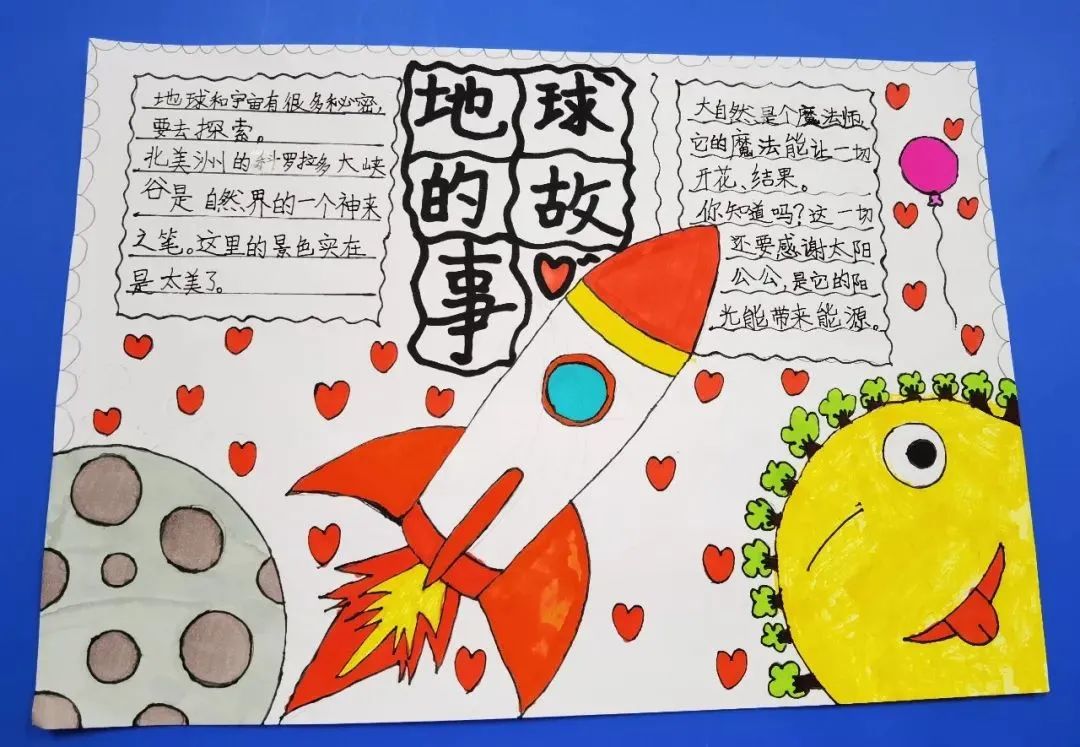 地球
的故
事
地球和宇宙有很多秘密,
要去探索。
北美洲的科罗拉多大峡
谷是自然界的一个神来
之笔。这里的景色实在
是太美了。
大自然是个魔法师,
它的魔法能让一切
开花、结果。
你知道吗?这一切
还要感谢太阳
公公,是它的阳
光能带来能源。